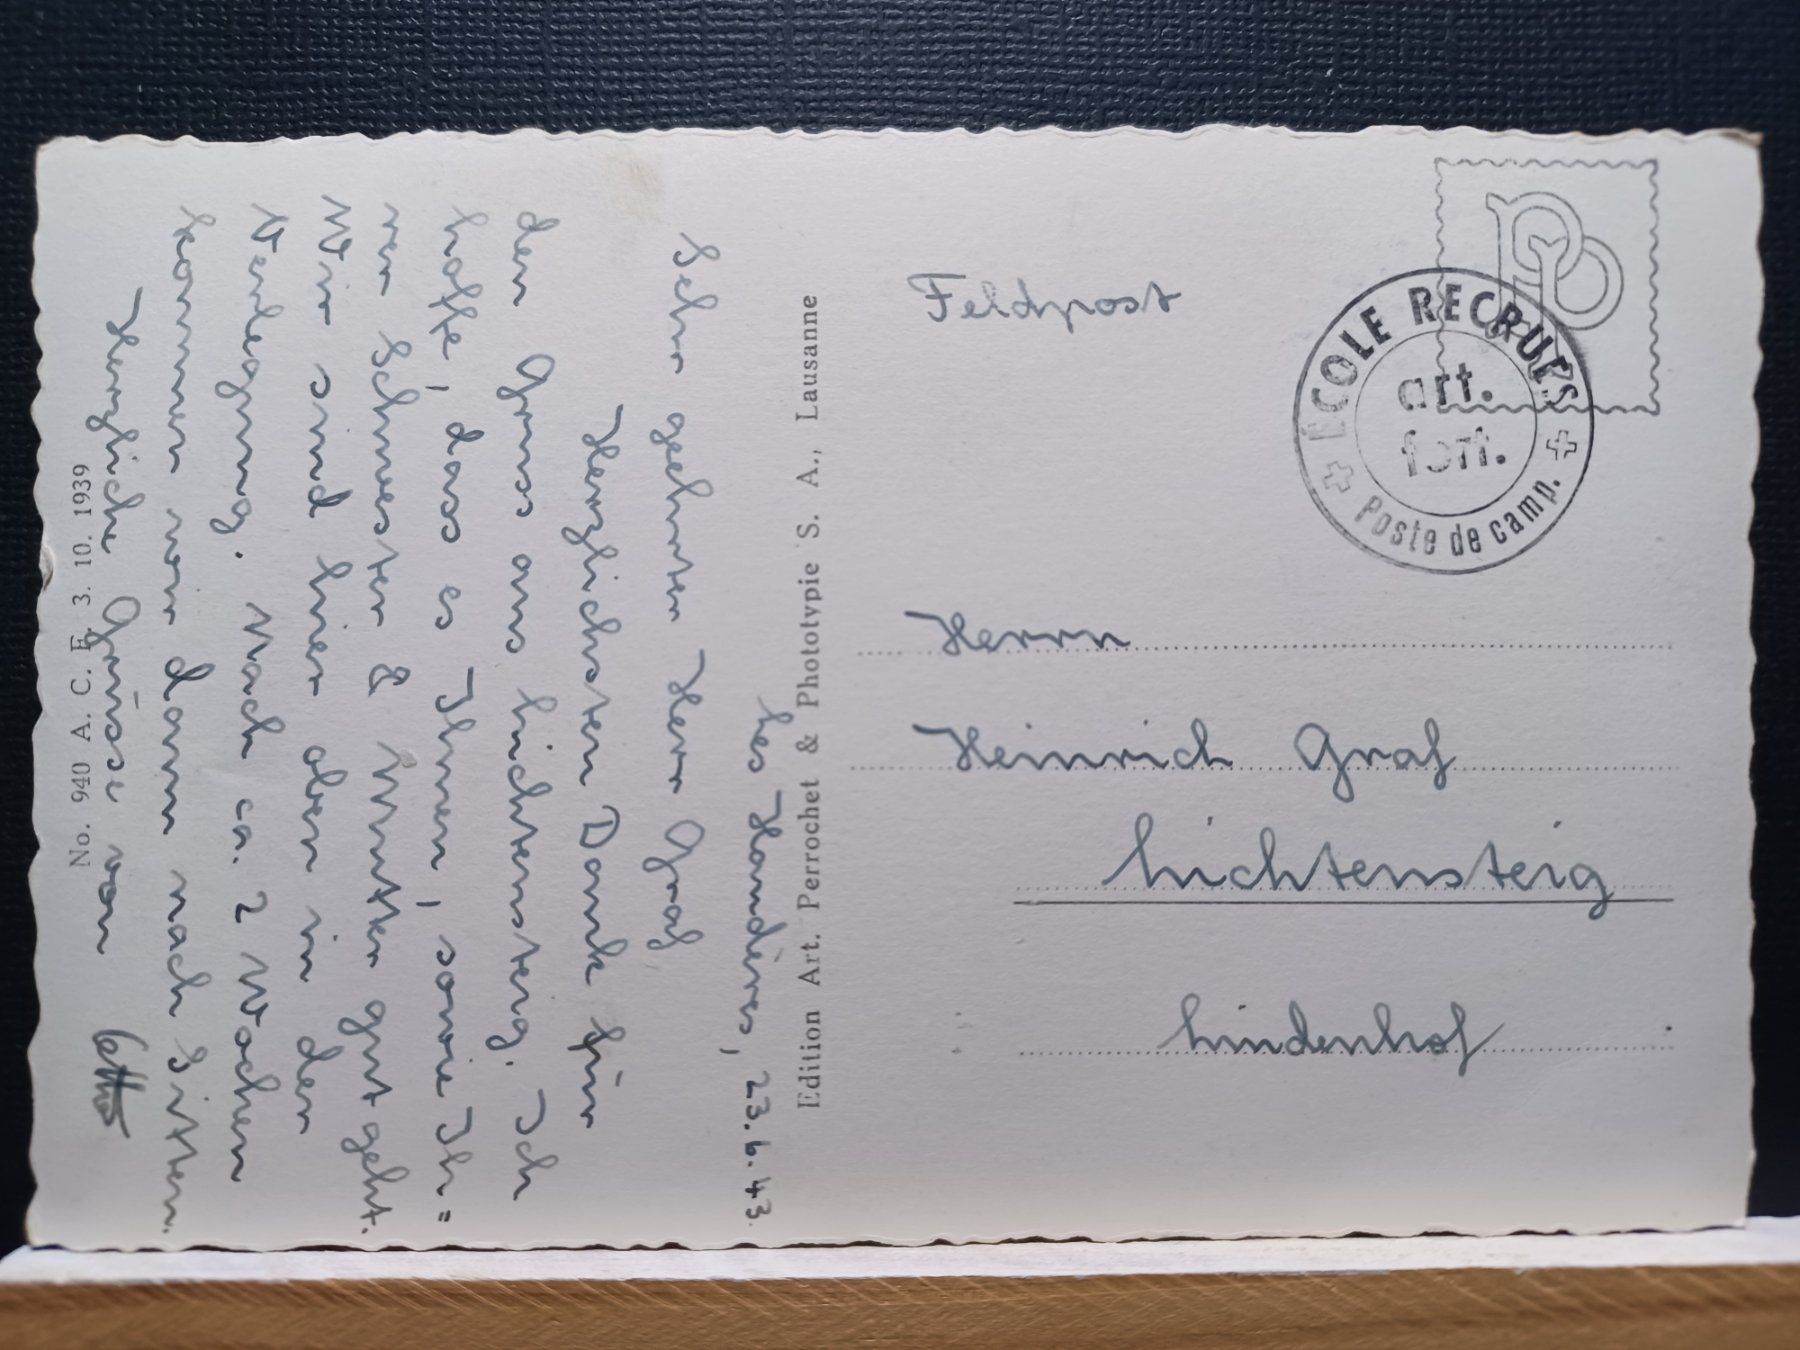 Les Haudères, 23.6.43.
Sehr geehrter Herr Graf
Herzlichsten Dank für
den Gruss aus Lichtensteig. Ich
hoffe, dass es Ihnen, sowie Ih=
rer Schwester & Mutter gut geht.
Wir sind hier oben in der
Verlegung. Nach ca. 2 Wochen
kommen wir dann nach Sitten.
Herzliche Grüsse von
No. 940 A. C. F. 3. 10. 1939
Edition Art. Perrochet & Phototypie S. A., Lausanne
Feldpost
PP
ÉCOLE RECRUES
art.
fort.
Poste de camp.
Herrn
Heinrich Graf
Lichtensteig
Lindenhof